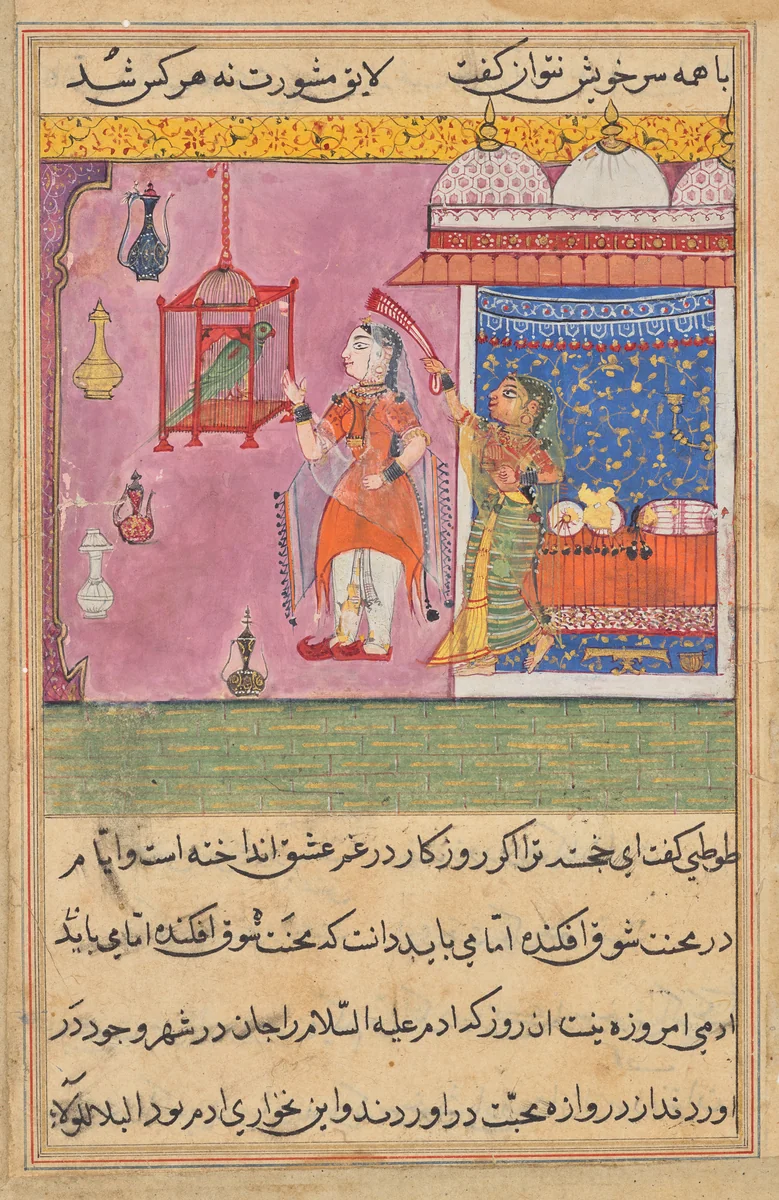 با همه سر خویش نتوان گفت لایق مشورت نه هر کس شد
طوطی گفت ای خجسته ترا اگر روزگار در غم عشق انداخته است و ایام
در محنت شوق افکنده اما می باید دانست که محنت شوق افکنده اما می باید
ادمی امروزه ینست ان روز که ادم علیه السلام را جان در شهر وجود در
اوردند از دروازه محبت در اوردند و این نخواری ادم بود البلا للولاء